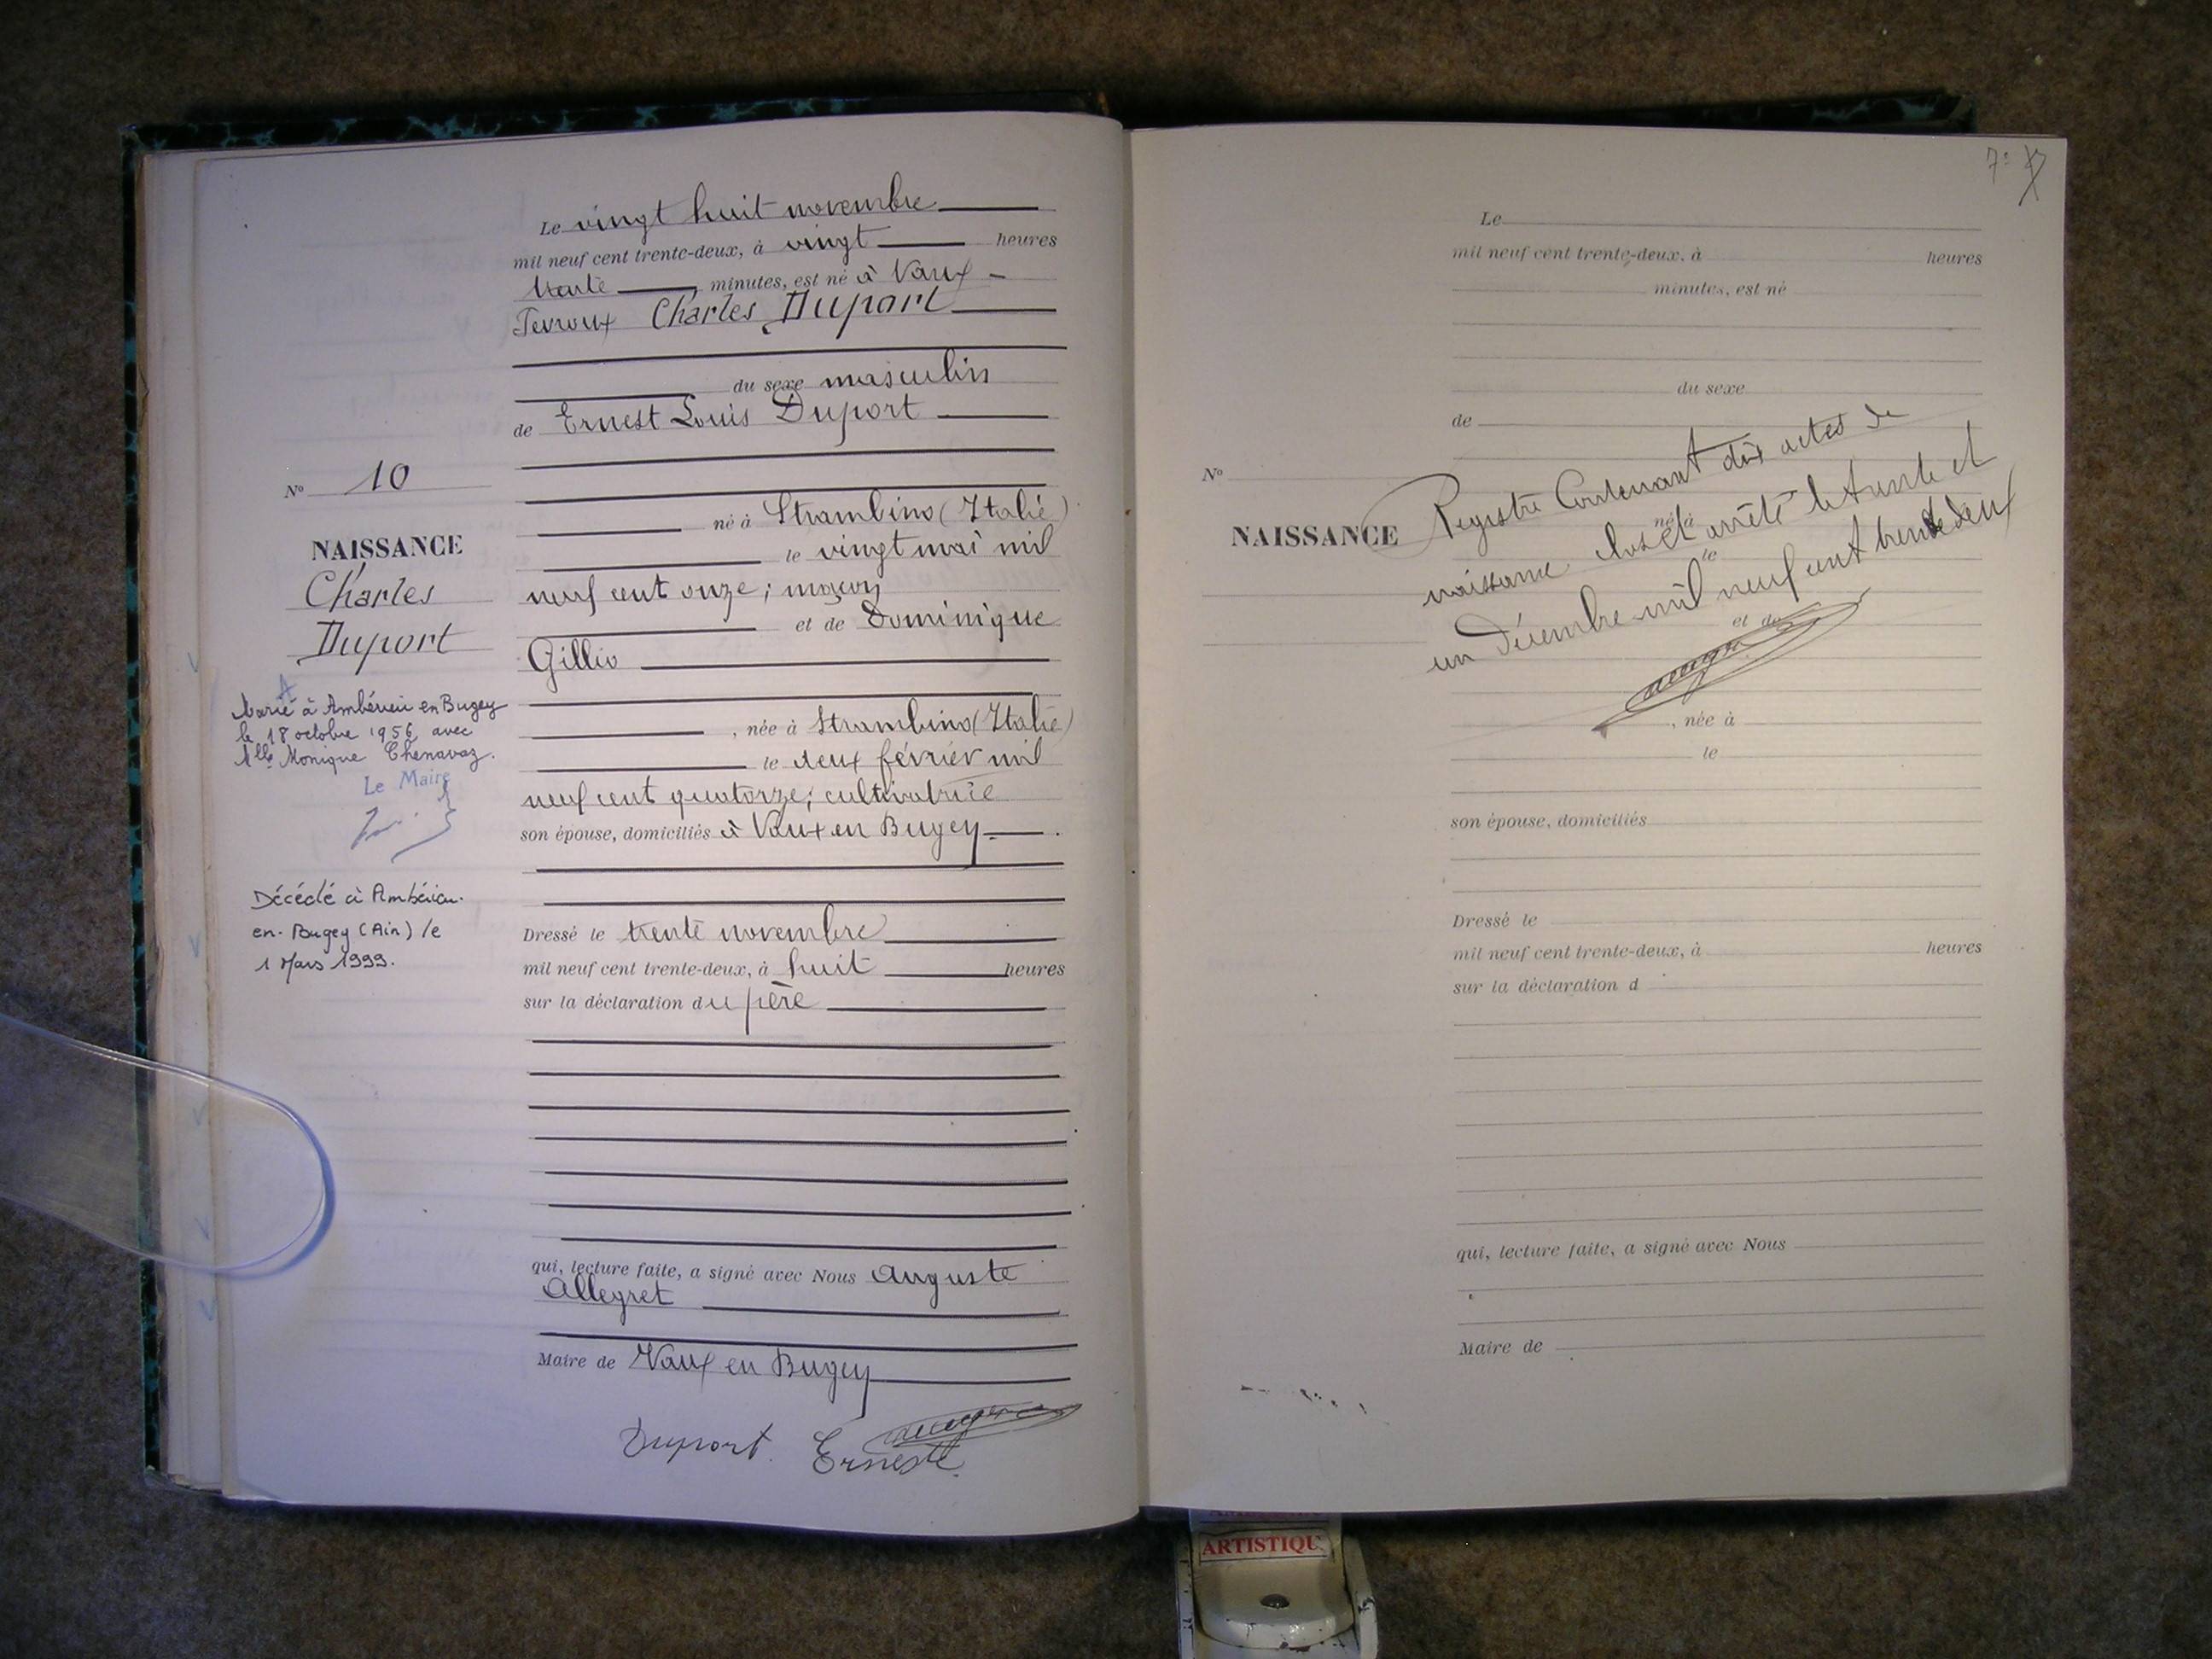 Le vingt huit novembre
mil neuf cent trente-deux, à vingt heures
trente minutes, est né à Vaux
Fevroux Charles Duport
du sexe masculin
de Ernest Louis Duport
né à Strambino (Italie)
le vingt mai mil
neuf cent onze; maçon
et de Dominique
Gillio
, née à Strambino (Italie)
le deux février mil
neuf cent quatorze; cultivatrice
son épouse, domiciliés à Vaux en Bugey
Dressé le trente novembre
mil neuf cent trente-deux, à huit heures
sur la déclaration du père
qui, lecture faite, a signé avec Nous Auguste
Alleyret
Maire de Vaux en Bugey
Duport Erneste
No 10
NAISSANCE
Charles
Duport
Marié à Ambérieu en Bugey
le 18 octobre 1956 avec
Mlle Monique Chenavaz.
Le Maire
Décédé à Ambérieu-
en-Bugey (Ain) le
1 Mars 1999.
7
Le
mil neuf cent trente-deux, à heures
minutes, est né
du sexe
de
No
NAISSANCE
né à
le
et de
Registre Contenant dix actes de
naissance clos et arrêté le trente et
un décembre mil neuf cent trente deux
, née à
le
son épouse, domiciliés
Dressé le
mil neuf cent trente-deux, à heures
sur la déclaration d
qui, lecture faite, a signé avec Nous
Maire de
ARTISTIQU